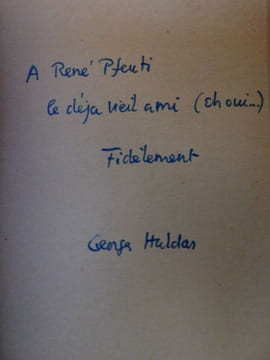 A René Pfenti
le déja vieil ami (Eh oui...)
Fidèlement
Georges Haldas